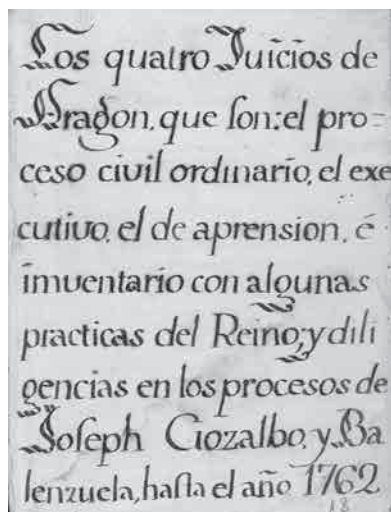 Los quatro Juicios de
Aragon. que son: el pro=
ceso civil ordinario, el exe
cutivo, el de aprension. é
imuentario con algunas
practicas del Reino; y dili
gencias en los procesos de
Joseph Ciozalbo, y Ba
lenzuela, hasta el año 1762
18